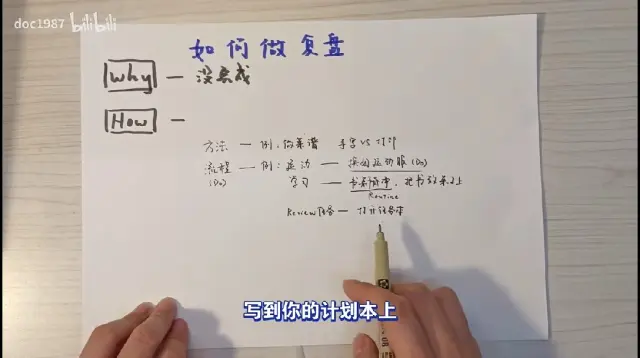 doc1987 bilibili
如何做复盘
Why — 没完成
How —
方法 — 例:你菜谱 手写VS打印
流程 — 例:运动 — 换好运动服(Do)
(Do) 学习 — 书桌清净,把书放桌上
Routine
Review任务 — 打开任务本
写到你的计划本上